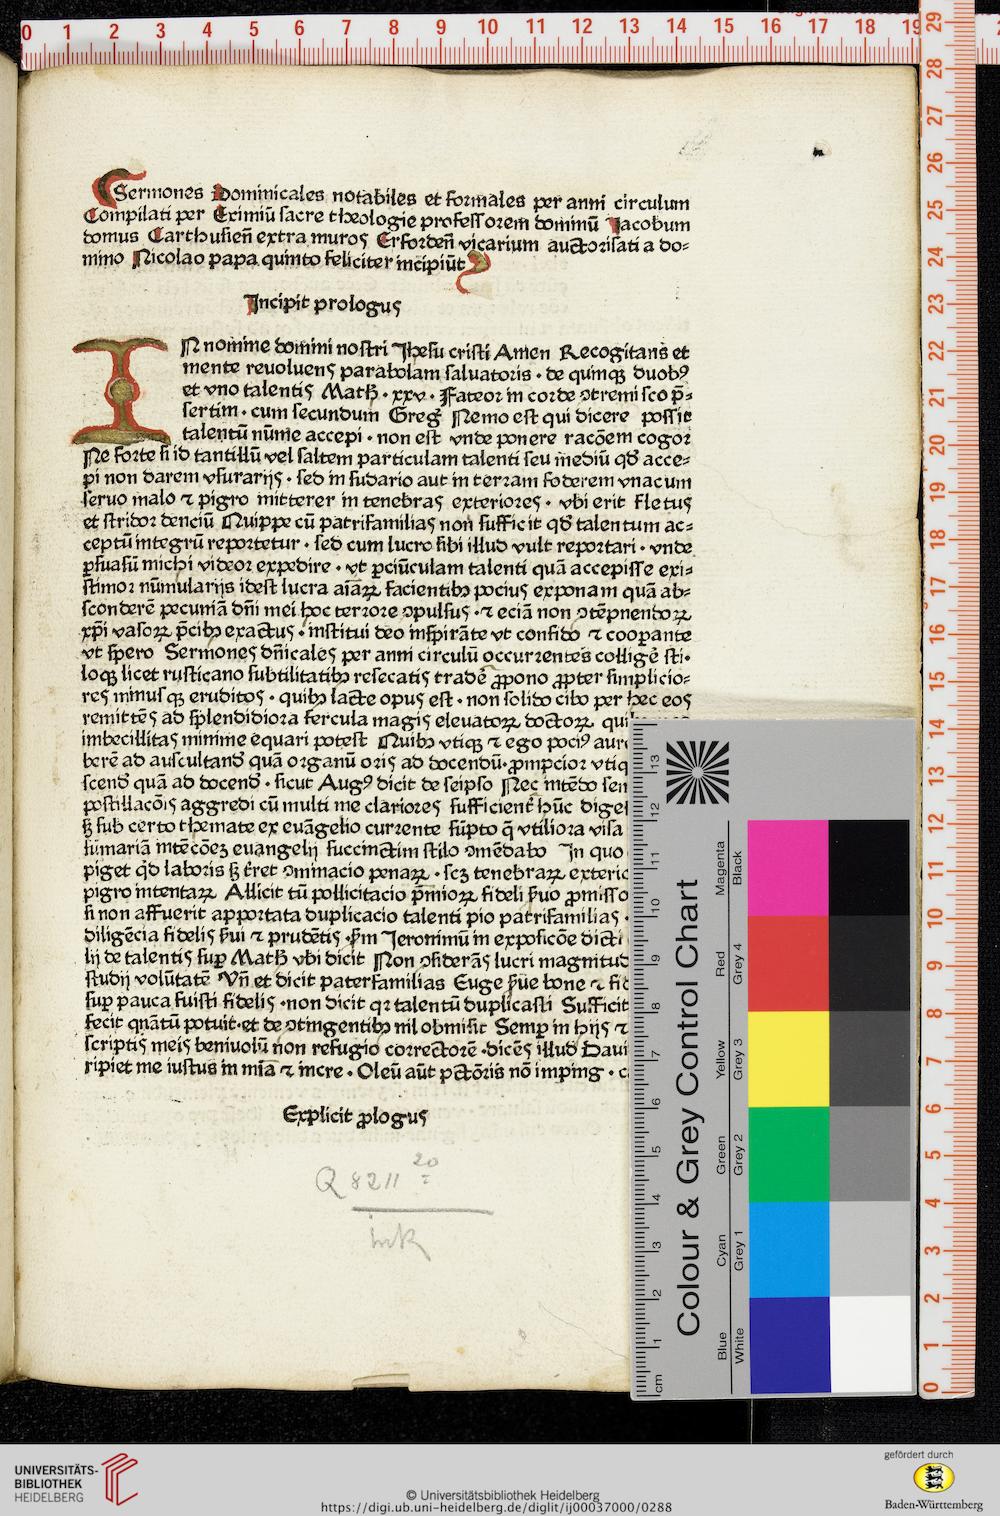 Sermones Dominicales notabiles et formales per anni circulum
Compilati per Eximiū sacre theologie professorem dominū Jacobum
domus Carthusieñ extra muros Erfordeñ vicarium auctorisati a do-
mino Nicolao papa quinto feliciter incipiūt
Incipit prologus
IN nomine domini nostri Jhesu cristi Amen Recogitans et
mente reuoluens parabolam saluatoris · de quinqꝫ duobꝰ
et vno talentis Matħ · xxv · Fateor in corde ↄtremisco p̄-
sertim · cum secundum Greg̃ Nemo est qui dicere possit
talentū nūme accepi · non est vnde ponere racōem cogor
Ne forte si id tantillū vel saltem particulam talenti seu mediū qd̄ acce-
pi non darem vsurarijs · sed in sudario aut in terram foderem vna cum
seruo malo ⁊ pigro mitterer in tenebras exteriores · vbi erit fletus
et stridor denciū Quippe cū patrifamilias non sufficit qd̄ talentum ac-
ceptū integrū reportetur · sed cum lucro sibi illud vult reportari · vnde
ꝑsuasū michi videor expedire · vt ꝑciūculam talenti quā accepisse exi-
stimor nūmularijs idest lucra aīaꝝ facientibꝫ pocius exponam quā ab-
sconderē pecuniā dñi mei hoc terrore ↄpulsus · ⁊ eciā non ↄtēpnendoꝝ
xp̄i vasoꝝ p̄cibꝫ exactus · institui deo inspirāte vt confido ⁊ cooꝑante
vt spero Sermones dñicales per anni circulū occurrentes colligē sti-
loqꝫ licet rusticano subtilitatibꝫ resecatis tradē ꝓpono ꝓpter simplicio-
res minusqꝫ eruditos · quibꝫ lacte opus est · non solido cibo per hec eos
remittēs ad splendidiora fercula magis eleuatoꝝ doctoꝝ
imbecillitas minime equari potest Quibꝫ vtiqꝫ ⁊ ego pociꝰ aur
berē ad auscultand̄ quā organū oris ad docendū· ꝓmpcior vtiq
scend̄ quā ad docend̄ · sicut Augꝰ dicit de seipso Nec intēdo sen
postillacōis aggredi cū multi me clariores sufficient̄ hūc dige
sꝫ sub certo themate ex euāgelio currente sūpto q̄ vtiliora visa
sūmariā intēcōeꝫ euangelij succinctim stilo ↄmēdabo In quo
piget qd̄ laboris sꝫ t̄ret ↄminacio penaꝝ · scꝫ tenebraꝝ exteri
pigro intentaꝝ Allicit tū pollicitacio p̄mioꝝ fideli ẜuo ꝓmisso
si non affuerit apportata duplicacio talenti pio patrifamilias ·
diligēcia fidelis ẜui ⁊ prudētis · ẜm Jeronimū in exposicōe dicti
lij de talentis suꝑ Matħ vbi dicit Non ↄsiderās lucri magnitud
studij volūtatē Vñ et dicit paterfamilias Euge ẜue bone ⁊ fid
suꝑ pauca fuisti fidelis · non dicit qꝛ talentū duplicasti Sufficit
fecit quātū potuit· et de ↄtingentibꝫ nil obmisit Semꝑ in hijs ⁊
scriptis meis beniuolū non refugio correctorē · dicēs illud Daui
ripiet me iustus in mīa ⁊ incre · Oleū aūt pc̄tōris nō imping ·
Explicit ꝓlogus
Q 8211 20
Colour & Grey Control Chart
Magenta Black
Red Grey 4
Yellow Grey 3
Green Grey 2
Cyan Grey 1
Blue White
cm 1 2 3 4 5 6 7 8 9 10 11 12 13
0 1 2 3 4 5 6 7 8 9 10 11 12 13 14 15 16 17 18 19
29
28
27
26
25
24
23
22
21
20
19
18
17
16
15
14
13
12
11
10
9
8
7
6
5
4
3
2
1
0
UNIVERSITÄTS-
BIBLIOTHEK
HEIDELBERG
© Universitätsbibliothek Heidelberg
https://digi.ub.uni-heidelberg.de/diglit/ij00037000/0288
gefördert durch
Baden-Württemberg